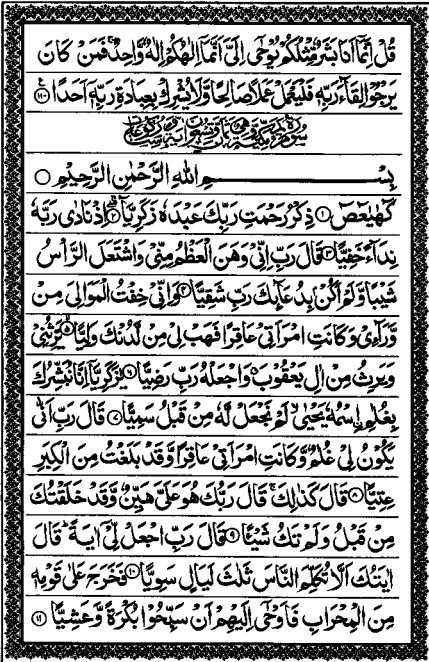 قُلْ اِنَّمَآ اَنَا بَشَرٌ مِّثْلُكُمْ يُوْحٰٓى اِلَيَّ اَنَّمَآ اِلٰهُكُمْ اِلٰهٌ وَّاحِدٌ ۚ فَمَنْ كَانَ
يَرْجُوْا لِقَآءَ رَبِّهٖ فَلْيَعْمَلْ عَمَلًا صَالِحًا وَّلَا يُشْرِكْ بِعِبَادَةِ رَبِّهٖٓ اَحَدًا ﴿۱۱۰﴾
بِسْمِ اللّٰهِ الرَّحْمٰنِ الرَّحِيْمِ ○
كٓهٰيٰعٓصٓ ﴿۱﴾ ذِكْرُ رَحْمَتِ رَبِّكَ عَبْدَهٗ زَكَرِيَّا ﴿۲﴾ اِذْ نَادٰى رَبَّهٗ
نِدَآءً خَفِيًّا ﴿۳﴾ قَالَ رَبِّ اِنِّيْ وَهَنَ الْعَظْمُ مِنِّيْ وَاشْتَعَلَ الرَّاْسُ
شَيْبًا وَّلَمْ اَكُنْۢ بِدُعَآئِكَ رَبِّ شَقِيًّا ﴿۴﴾ وَاِنِّيْ خِفْتُ الْمَوَالِيَ مِنْ
وَّرَآءِيْ وَكَانَتِ امْرَاَتِيْ عَاقِرًا فَهَبْ لِيْ مِنْ لَّدُنْكَ وَلِيًّا ﴿۵﴾ يَّرِثُنِيْ
وَيَرِثُ مِنْ اٰلِ يَعْقُوْبَ ۖ وَاجْعَلْهُ رَبِّ رَضِيًّا ﴿۶﴾ يٰزَكَرِيَّآ اِنَّا نُبَشِّرُكَ
بِغُلٰمِ ۨ اسْمُهٗ يَحْيٰى ۙ لَمْ نَجْعَلْ لَّهٗ مِنْ قَبْلُ سَمِيًّا ﴿۷﴾ قَالَ رَبِّ اَنّٰى
يَكُوْنُ لِيْ غُلٰمٌ وَّكَانَتِ امْرَاَتِيْ عَاقِرًا وَّقَدْ بَلَغْتُ مِنَ الْكِبَرِ
عِتِيًّا ﴿۸﴾ قَالَ كَذٰلِكَ ۚ قَالَ رَبُّكَ هُوَ عَلَيَّ هَيِّنٌ وَّقَدْ خَلَقْتُكَ
مِنْ قَبْلُ وَلَمْ تَكُ شَيْـًٔا ﴿۹﴾ قَالَ رَبِّ اجْعَلْ لِّيْٓ اٰيَةً ؕ قَالَ
اٰيَتُكَ اَلَّا تُكَلِّمَ النَّاسَ ثَلٰثَ لَيَالٍ سَوِيًّا ﴿۱۰﴾ فَخَرَجَ عَلٰى قَوْمِهٖ
مِنَ الْمِحْرَابِ فَاَوْحٰٓى اِلَيْهِمْ اَنْ سَبِّحُوْا بُكْرَةً وَّعَشِيًّا ﴿۱۱﴾